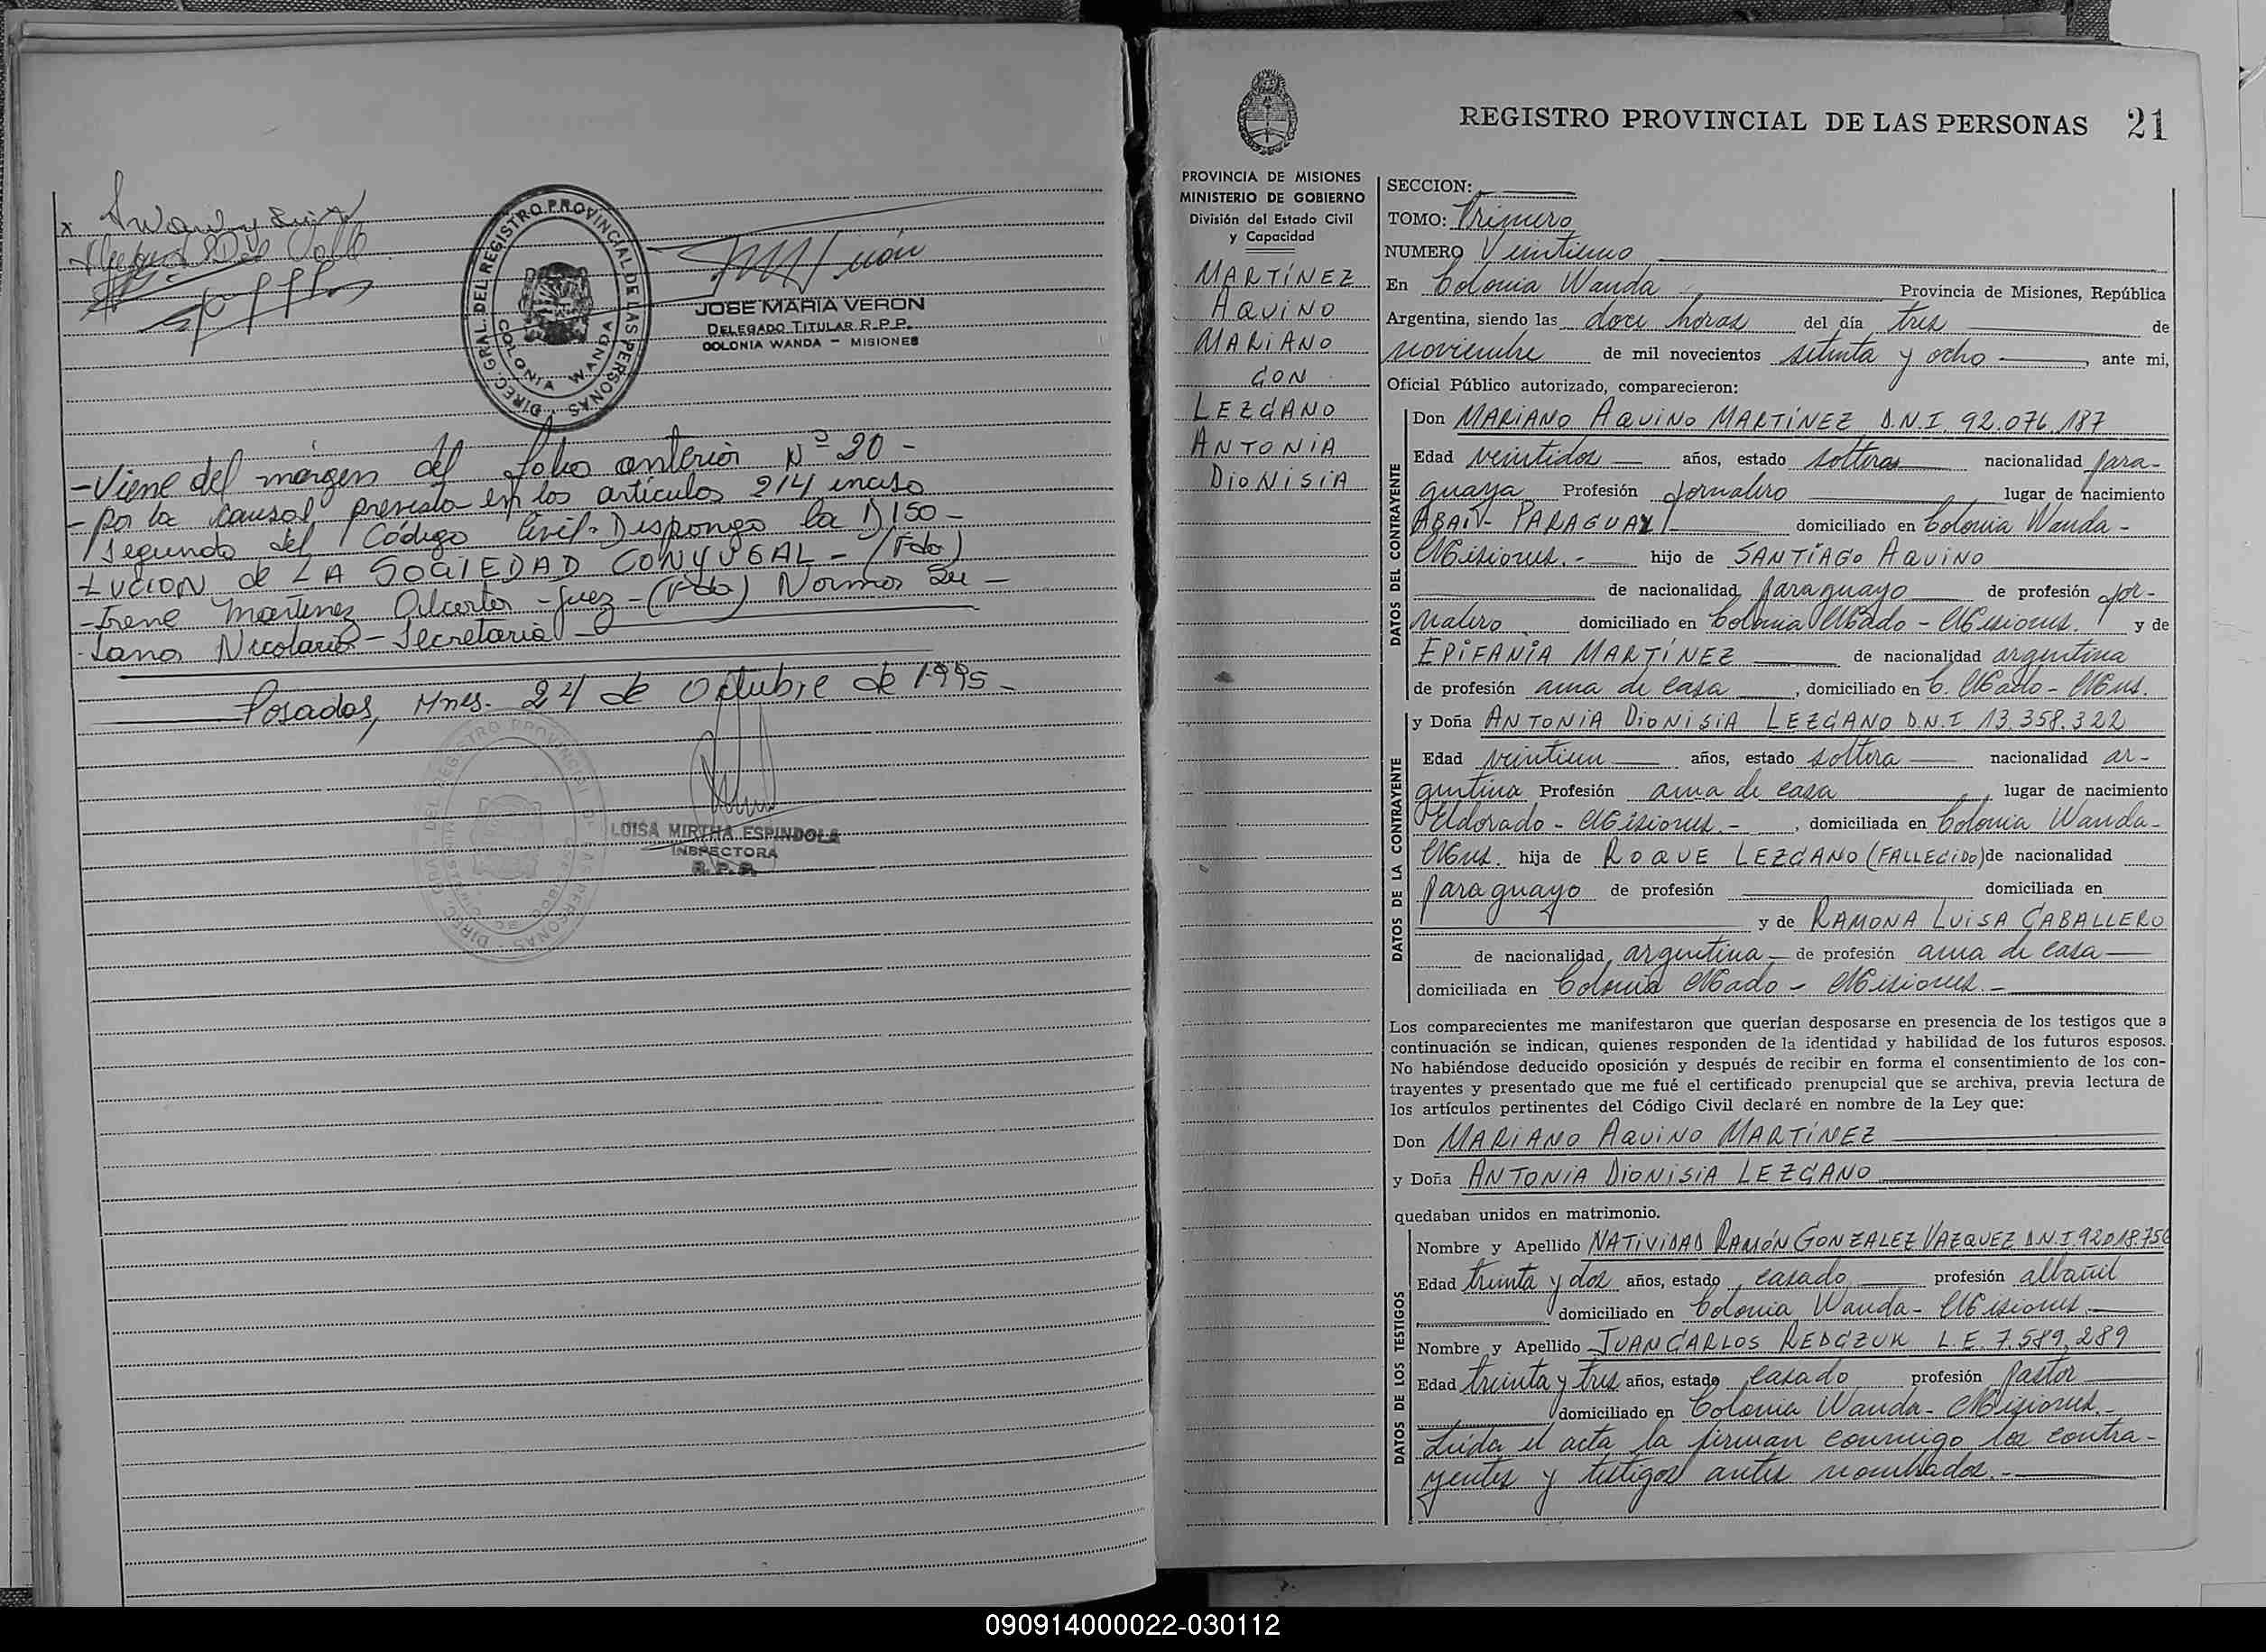 JOSE MARIA VERON
DELEGADO TITULAR R.P.P.
COLONIA WANDA - MISIONES
DIREC. GRAL. DEL REGISTRO PROVINCIAL DE LAS PERSONAS
COLONIA WANDA
-Viene del márgen del folio anterior Nº 20 -
- Por la causal prevista en los artículos 214 inciso
segundo del Código Civil- Dispongo la DISO-
LUCION de LA SOCIEDAD CONYUGAL - (Fdo)
-Irene Martinez Alcorta - Juez - (Fdo) Norma Su-
sana Nicolaris - Secretaria -
Posadas, Mnes. 24 de Octubre de 1995 -
LUISA MIRTHA ESPINDOLA
INSPECTORA
R. P. P.
REGISTRO PROVINCIAL DE LAS PERSONAS 21
PROVINCIA DE MISIONES
MINISTERIO DE GOBIERNO
División del Estado Civil
y Capacidad
MARTÍNEZ
AQUINO
MARIANO
CON
LEZCANO
ANTONIA
DIONISIA
SECCION:
TOMO: Primero
NUMERO Veintiuno
En Colonia Wanda Provincia de Misiones, República
Argentina, siendo las doce horas del día tres de
noviembre de mil novecientos setenta y ocho , ante mi,
Oficial Público autorizado, comparecieron:
DATOS DEL CONTRAYENTE
Don MARIANO AQUINO MARTÍNEZ D.N.I. 92.076.187
Edad veintidos años, estado soltero nacionalidad para-
guaya Profesión Jornalero lugar de nacimiento
ABAÍ - PARAGUAY domiciliado en Colonia Wanda -
Misiones.- hijo de SANTIAGO AQUINO
de nacionalidad paraguayo de profesión jor-
nalero domiciliado en Colonia Mado - Misiones. y de
EPIFANIA MARTÍNEZ de nacionalidad argentina
de profesión ama de casa , domiciliado en C. Mado - Mns.
DATOS DE LA CONTRAYENTE
y Doña ANTONIA DIONISIA LEZCANO D.N.I 13.358.322
Edad veintiun años, estado soltera nacionalidad ar-
gentina Profesión ama de casa lugar de nacimiento
Eldorado - Misiones.- , domiciliada en Colonia Wanda -
Mns. hija de ROQUE LEZCANO (FALLECIDO) de nacionalidad
paraguayo de profesión domiciliada en
y de RAMONA LUISA CABALLERO
de nacionalidad argentina de profesión ama de casa
domiciliada en Colonia Mado - Misiones.-
Los comparecientes me manifestaron que querían desposarse en presencia de los testigos que a
continuación se indican, quienes responden de la identidad y habilidad de los futuros esposos.
No habiéndose deducido oposición y después de recibir en forma el consentimiento de los con-
trayentes y presentado que me fué el certificado prenupcial que se archiva, previa lectura de
los artículos pertinentes del Código Civil declaré en nombre de la Ley que:
Don MARIANO AQUINO MARTÍNEZ
y Doña ANTONIA DIONISIA LEZCANO
quedaban unidos en matrimonio.
DATOS DE LOS TESTIGOS
Nombre y Apellido NATIVIDAD RAMÓN GONZALEZ VAZQUEZ D.N.I.92018.756
Edad treinta y dos años, estado casado profesión albañil
domiciliado en Colonia Wanda - Misiones.
Nombre y Apellido JUAN CARLOS REDCZUK L.E. 7.589.289
Edad treinta y tres años, estado casado profesión pastor
domiciliado en Colonia Wanda - Misiones.-
Leída el acta la firman conmigo los contra-
yentes y testigos antes nombrados.-
090914000022-030112